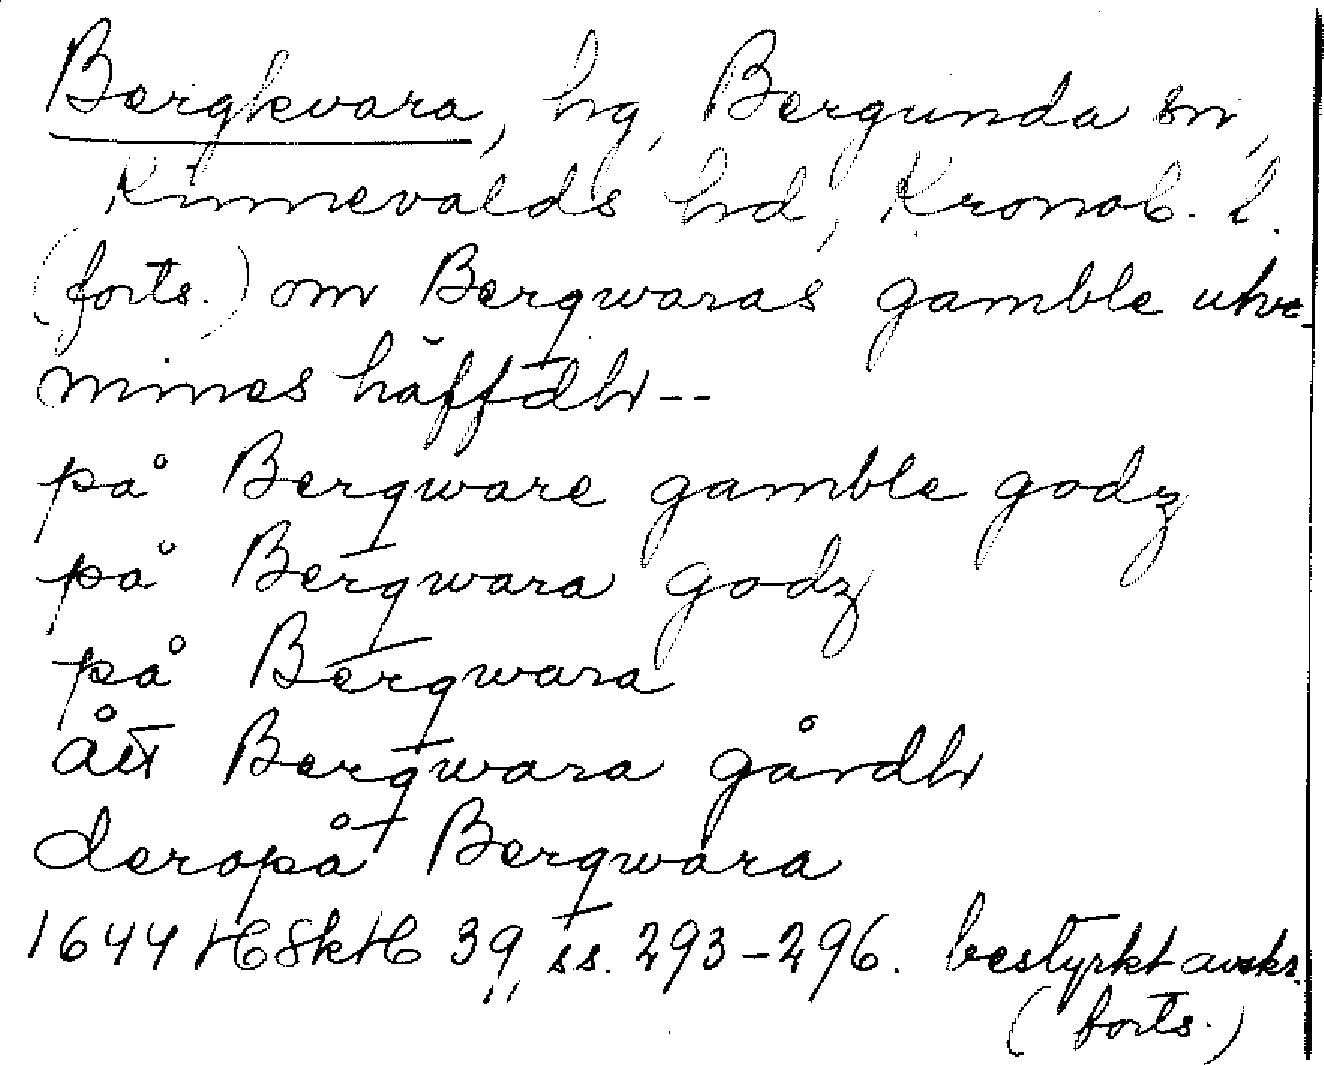 Bergkvara, hg, Bergunda sn,
Kinnevalds hd, Kronob. l.
(forts.) om Bergwaras gamble uhr-
minnes häffdhr--
på Bergware gamble godz
på Bergwara godz
på Bergwara
ått Bergwara gårdhr
deropå Bergwara
1644 HSkH 39, ss. 293-296. bestyrkt avskr.
(forts.)